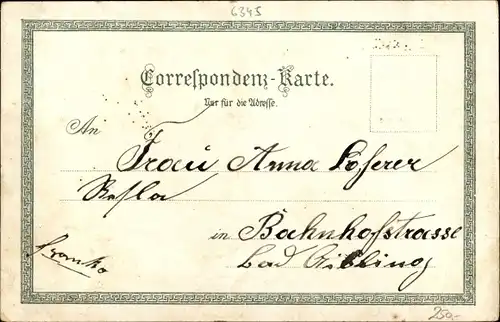 6345
Correspondenz-Karte.
Nur für die Adresse.
An
Frau Anna Loferer
in Bahnhofstrasse
franko
Bad Aibling
250.-